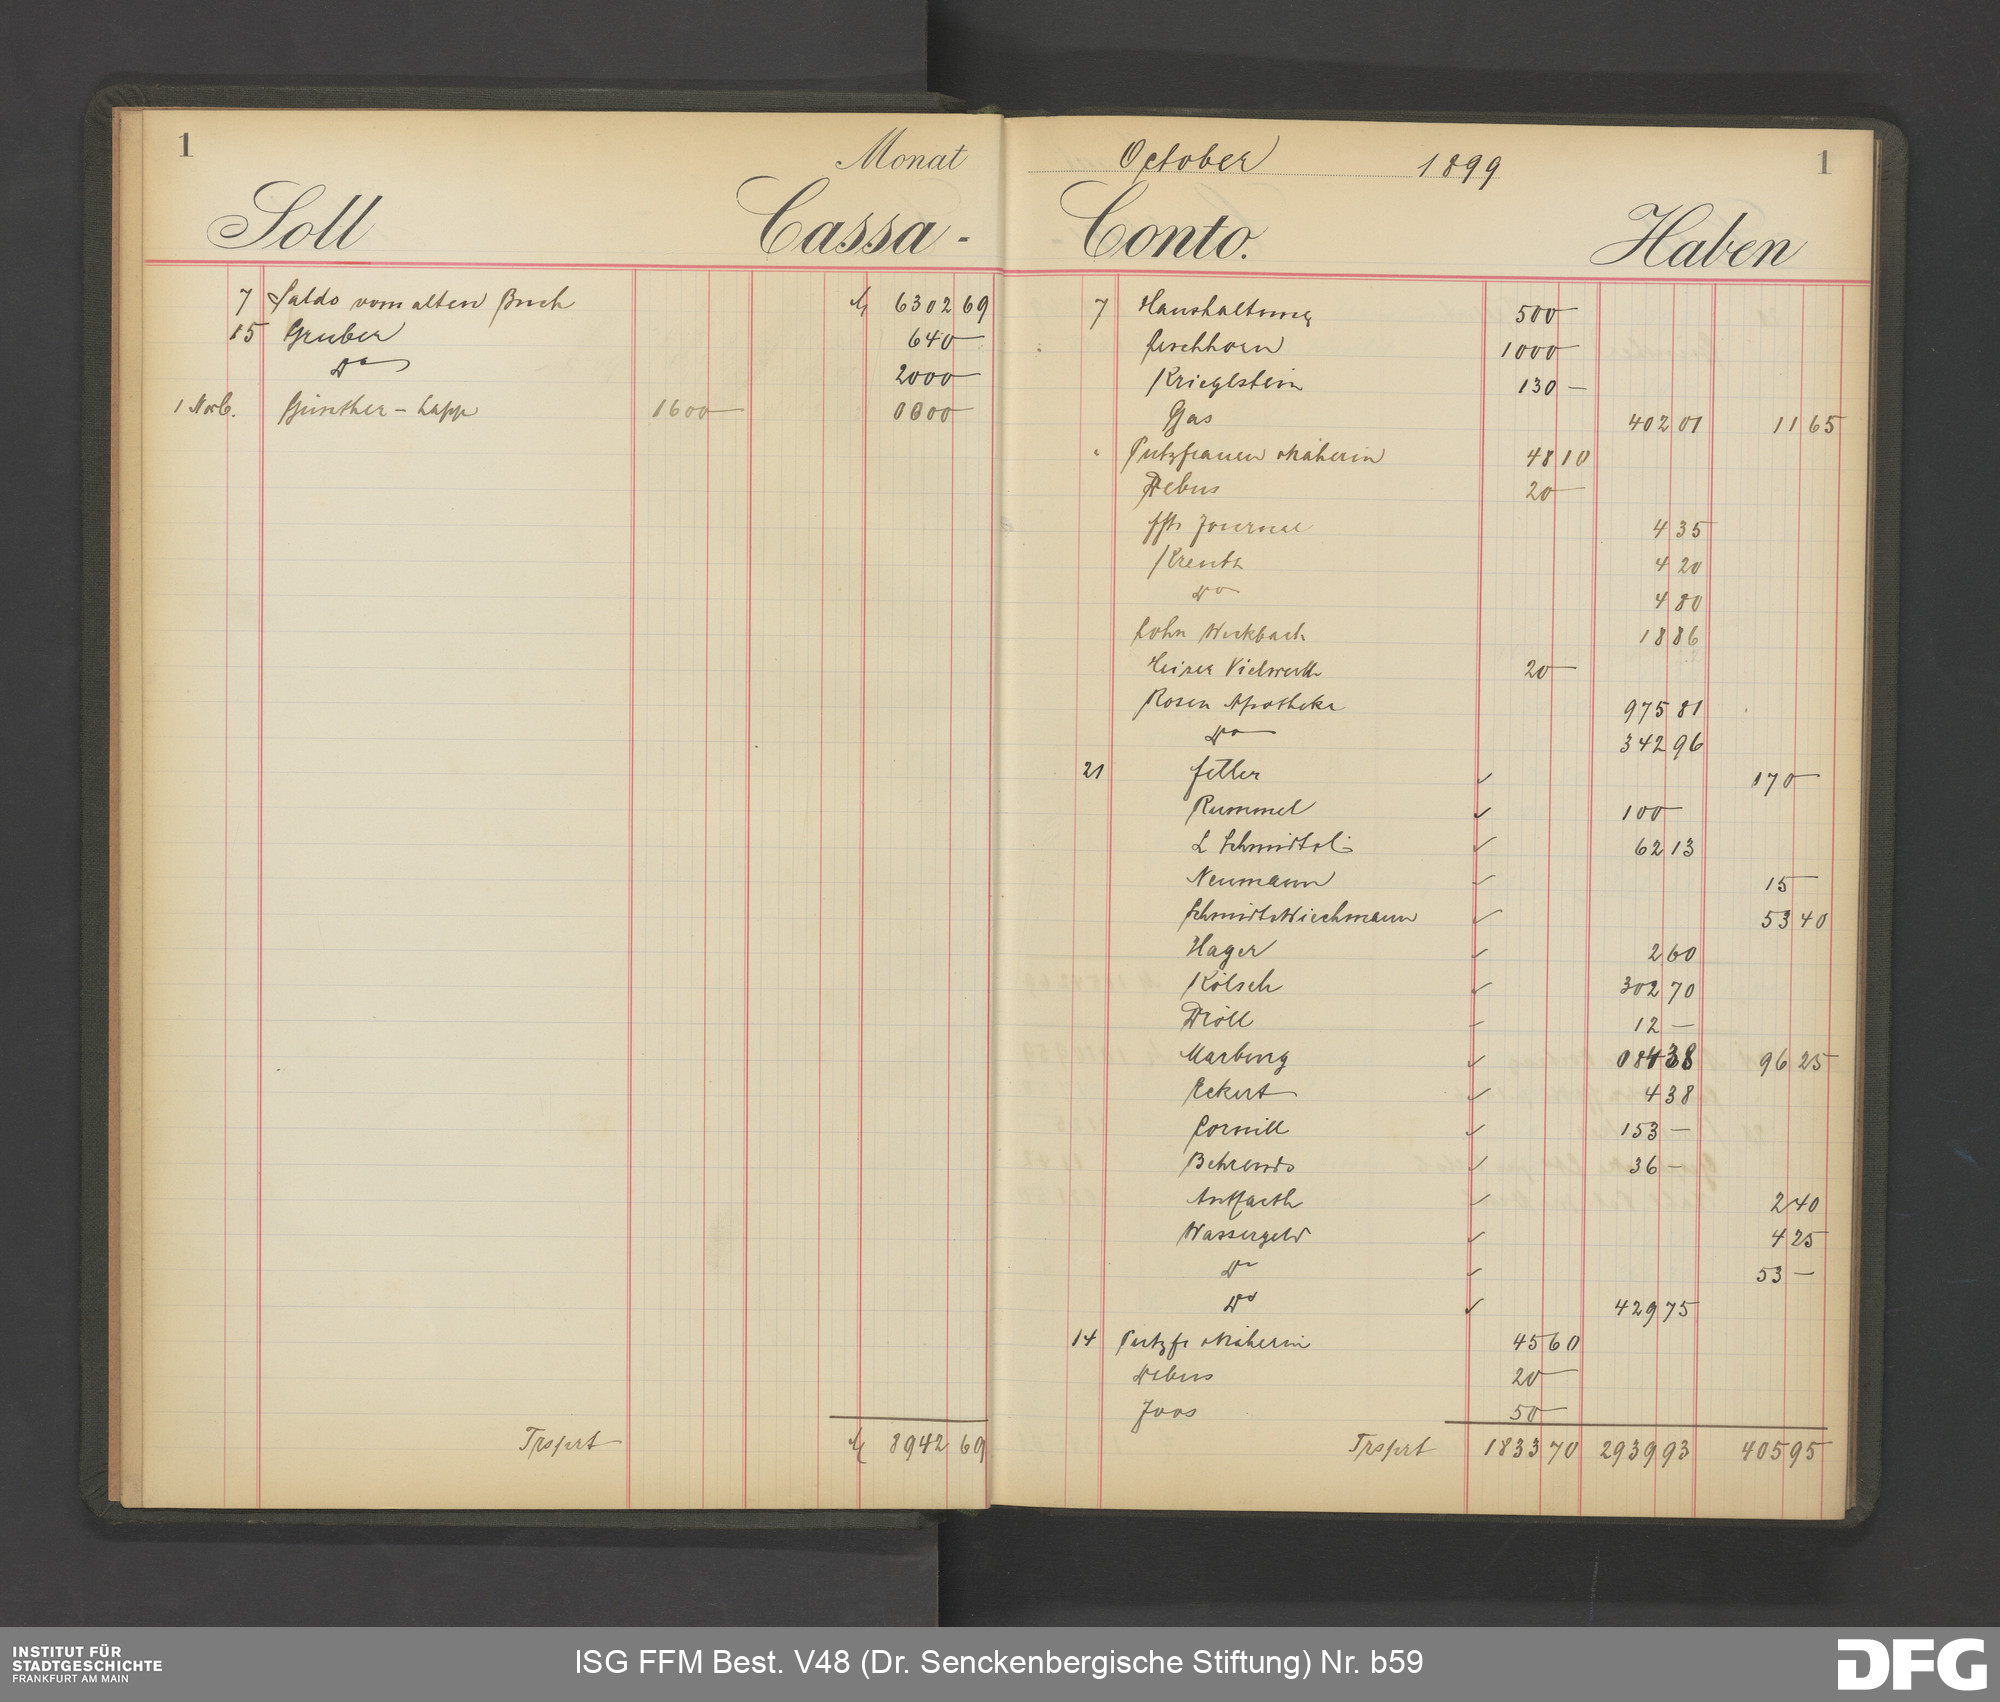 1
Monat
Soll Cassa-
7 Saldo vom alten Buch M 6302 69
15 Gruber 640 —
Do 2000 —
1 Novb. Günther - Lapp 1600 — 0000 —
Trsprt M 8942 69
October 1899 1
Conto. Haben
7 Haushaltung 500 —
Leschhorn 1000 —
Krieglstein 130 —
Gas 402 01 11 65
" Putzfrauen Näherin 48 10
Debus 20 —
Journal 4 35
Kreuth 4 20
Do 4 80
Lohn 18 86
20 —
Rosen Apotheke 975 81
Do 342 96
21 170 —
Rummel ✓ 100 —
L Schmidt ✓ 62 13
Neumann ✓ 15 —
Schmidt Wiechmann ✓ 53 40
Hager ✓ 2 60
Kölsch ✓ 302 70
Dröll ✓ 12 —
Marburg ✓ 96 25
Eckert ✓ 4 38
Cornill ✓ 153 —
Behrends ✓ 36 —
✓ 2 40
Wassergeld ✓ 4 25
Do ✓ 53 —
Do ✓ 429 75
14 Putzfr Näherin 45 60
Debus 20 —
Joos 50 —
Trsprt 1833 70 2939 93 405 95
INSTITUT FÜR
STADTGESCHICHTE
FRANKFURT AM MAIN
ISG FFM Best. V48 (Dr. Senckenbergische Stiftung) Nr. b59
DFG